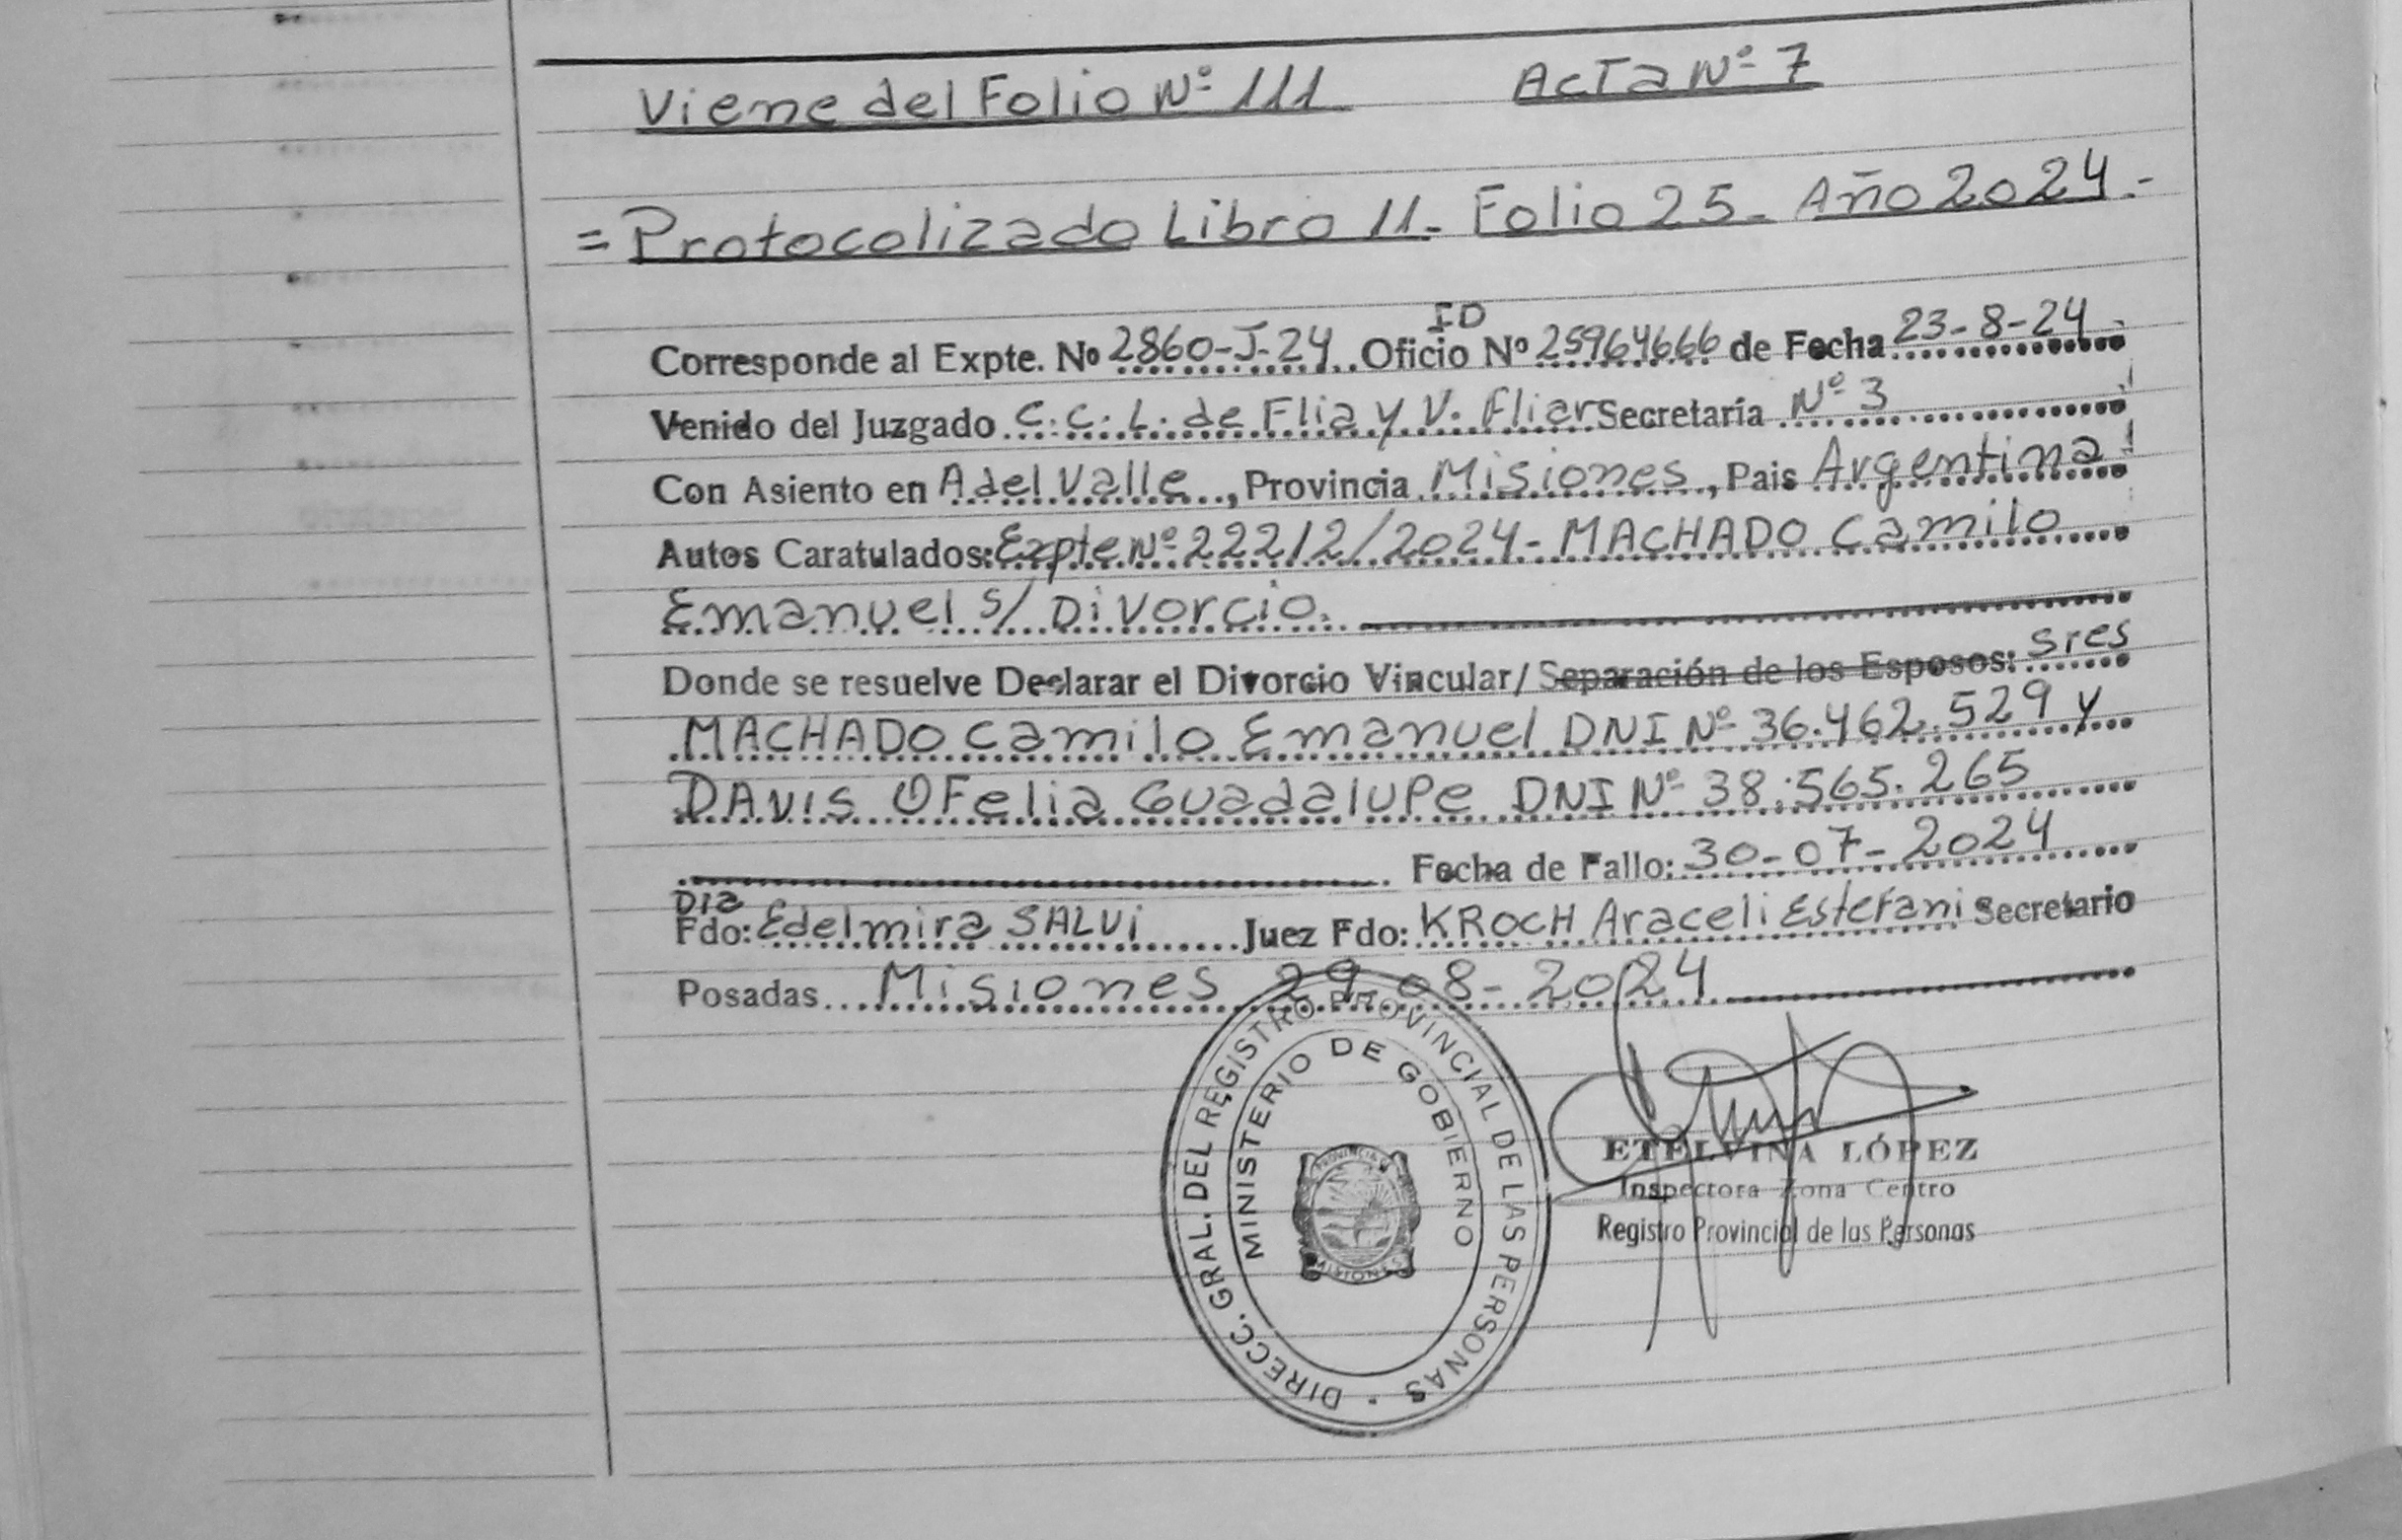 Viene del Folio Nº 111 Acta Nº 7
= Protocolizado Libro 11- Folio 25- Año 2024.-
ID
Corresponde al Expte. Nº 2860-J-24 Oficio Nº 25964666 de Fecha 23-8-24.
Venido del Juzgado C.C.L. de Flia y V. Fliar Secretaría Nº 3
Con Asiento en A del Valle, Provincia Misiones, Pais Argentina
Autos Caratulados: Expte Nº 22212/2024- MACHADO Camilo
Emanuel s/ Divorcio.
Donde se resuelve Declarar el Divorcio Vincular/ Separación de los Esposos: Sres
MACHADO Camilo Emanuel DNI Nº 36.462.529 y
DAVIS OFelia Guadalupe DNI Nº 38.565.265
Fecha de Fallo: 30-07-2024
Dra
Fdo: Edelmira SALVI Juez Fdo: KROCH Araceli Estefani Secretario
Posadas Misiones 29-08-2024
DIRECC. GRAL. DEL REGISTRO PROVINCIAL DE LAS PERSONAS
MINISTERIO DE GOBIERNO
PROVINCIA DE
MISIONES
ETELVINA LÓPEZ
Inspectora Zona Centro
Registro Provincial de las Personas